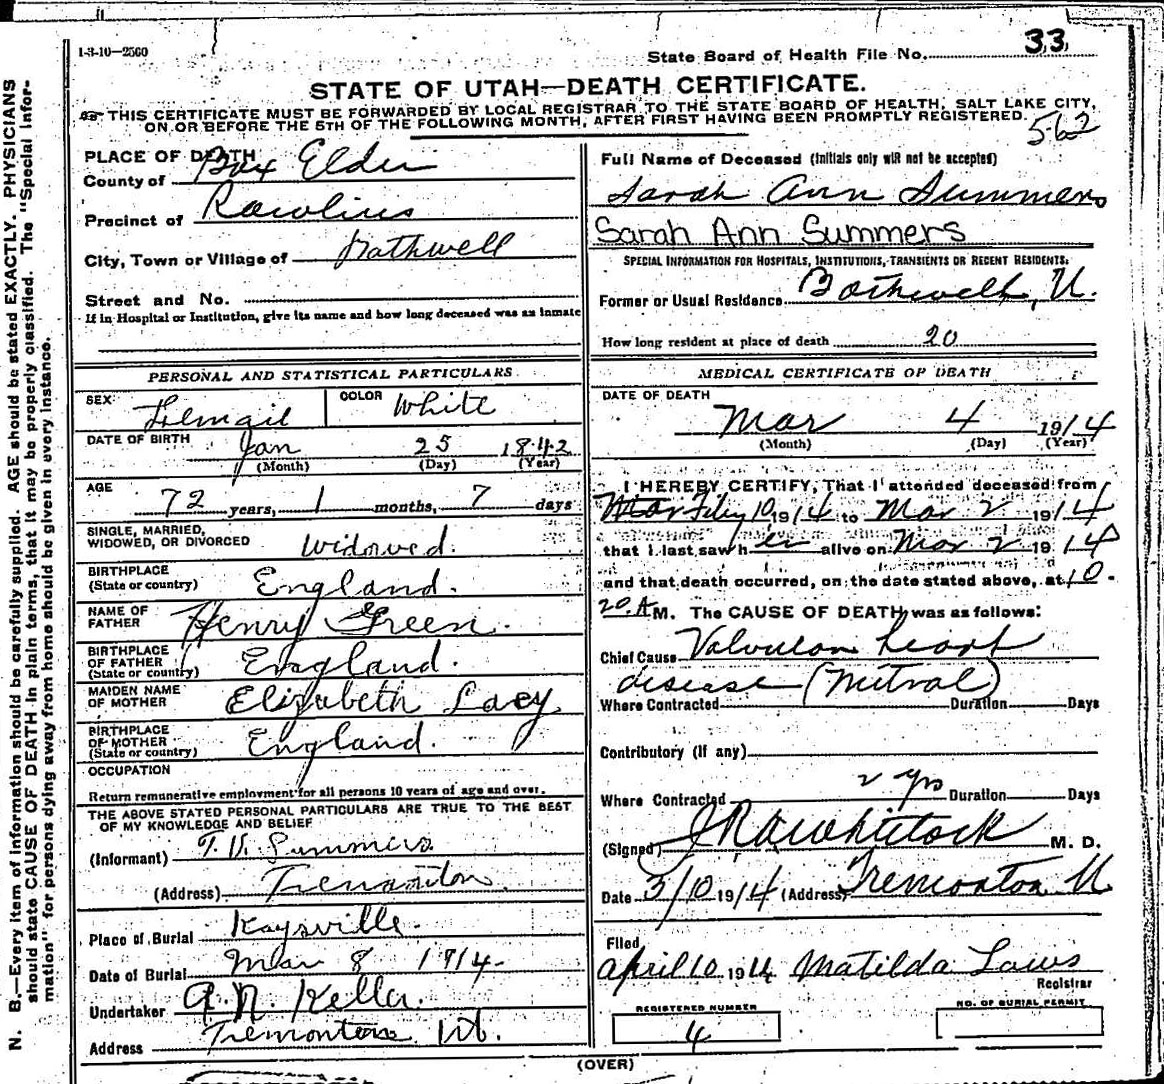 1-3-10—2560
State Board of Health File No. 33
STATE OF UTAH—DEATH CERTIFICATE.
THIS CERTIFICATE MUST BE FORWARDED BY LOCAL REGISTRAR TO THE STATE BOARD OF HEALTH, SALT LAKE CITY,
ON OR BEFORE THE 5TH OF THE FOLLOWING MONTH, AFTER FIRST HAVING BEEN PROMPTLY REGISTERED.
562
PLACE OF DEATH
County of Box Elder
Precinct of Rawlins
City, Town or Village of Bothwell
Street and No.
If in Hospital or Institution, give its name and how long deceased was an inmate
PERSONAL AND STATISTICAL PARTICULARS
SEX Femail COLOR White
DATE OF BIRTH Jan 25 1842
(Month) (Day) (Year)
AGE 72 years, 1 months, 7 days
SINGLE, MARRIED,
WIDOWED, OR DIVORCED Widowed.
BIRTHPLACE
(State or country) England.
NAME OF
FATHER Henry Green.
BIRTHPLACE
OF FATHER
(State or country) England.
MAIDEN NAME
OF MOTHER Elizabeth Lacy
BIRTHPLACE
OF MOTHER
(State or country) England.
OCCUPATION
Return remunerative employment for all persons 10 years of age and over.
THE ABOVE STATED PERSONAL PARTICULARS ARE TRUE TO THE BEST
OF MY KNOWLEDGE AND BELIEF
(Informant) Summers
(Address) Tremonton
Place of Burial Kaysville.
Date of Burial Mar 8 1914.
Undertaker A. N. Keller.
Address Tremonton Ut.
Full Name of Deceased (Initials only will not be accepted)
Sarah Ann Summers
Sarah Ann Summers
SPECIAL INFORMATION FOR HOSPITALS, INSTITUTIONS, TRANSIENTS OR RECENT RESIDENTS.
Former or Usual Residence Bothwell, U.
How long resident at place of death 20
MEDICAL CERTIFICATE OF DEATH
DATE OF DEATH
Mar 4 1914
(Month) (Day) (Year)
I HEREBY CERTIFY, That I attended deceased from
10 1914 to Mar 2 1914
that I last saw h er alive on Mar 2 1914
and that death occurred, on the date stated above, at 10.
20 A M. The CAUSE OF DEATH was as follows:
Chief Cause Valvular heart
disease (Mitral)
Where Contracted Duration Days
Contributory (If any)
2 yrs
Where Contracted Duration Days
(Signed) Whitlock M. D.
Date 3/10 1914 (Address) Tremonton U
Filed
April 10 1914 Matilda Laws
Registrar
REGISTERED NUMBER
4
NO. OF BURIAL PERMIT
(OVER)
N. B.—Every item of information should be carefully supplied. AGE should be stated EXACTLY. PHYSICIANS
should state CAUSE OF DEATH in plain terms, that it may be properly classified. The "Special Infor-
mation" for persons dying away from home should be given in every instance.